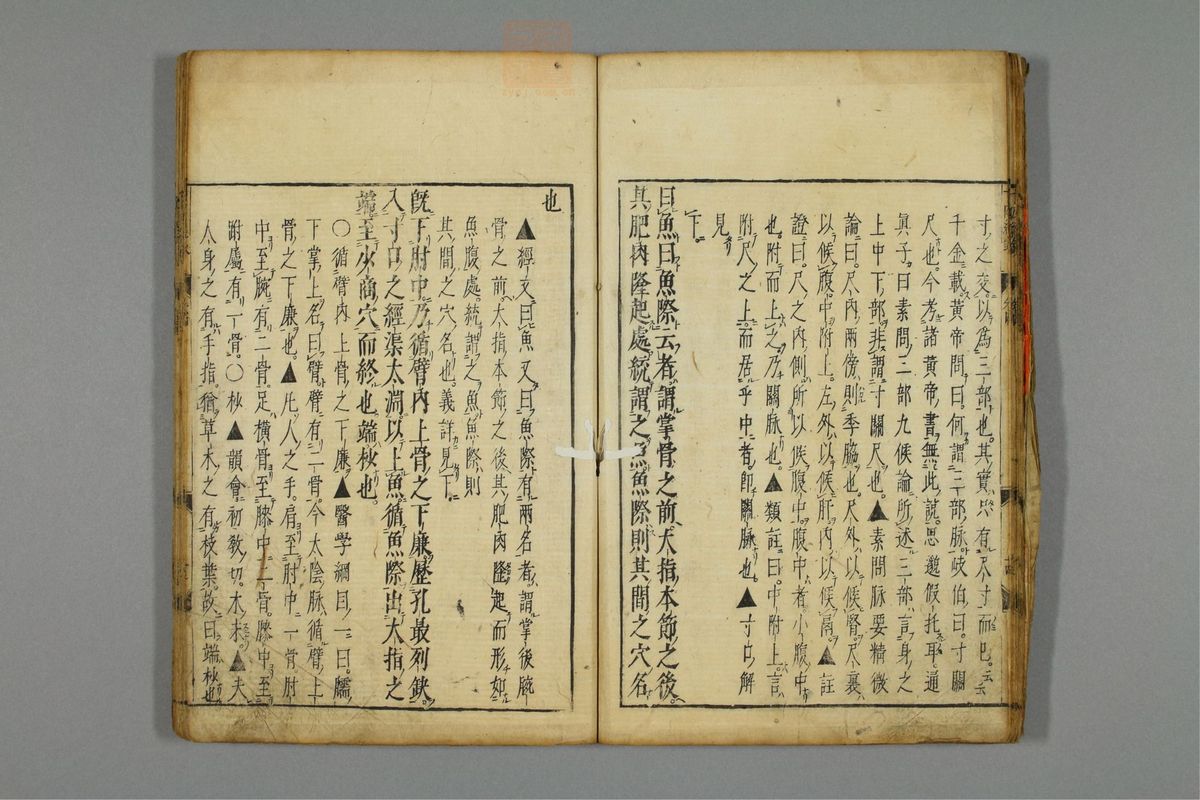 寸之交以為三部也。其實只有尺寸而已。云云
千金載黃帝問曰。何謂三部脉。岐伯曰。寸關
尺也。今考諸黃帝書無此說。思邈假托耳。通
眞子。曰素問三部九候論所述三部言身之
上中下部非謂寸關尺也。▲素問脉要精微
論曰。尺內兩傍則季脇也。尺外以候腎。尺裏
以候腹。中附上。左外以候肝內以候鬲▲註
證曰。尺之內側所以候腹中。腹中者。小腹中
也。附而上之乃關脉也。▲類註曰。中附上。言
附尺之上而居乎中者。即關脉也▲寸口解
見下。
曰魚曰魚際云者謂掌骨之前。大指本節之後。
其肥肉隆起處統謂之魚。魚際則其間之穴名
也
▲經文曰魚又曰魚際有兩名者。謂掌後腕
骨之前。大指本節之後其肥肉隆起而形如
魚腹處。統謂之魚。魚際則
其間之穴名也。義詳見下。
旣下肘中乃循臂內上骨之下廉歷孔最列缺。
入寸口之經渠太淵以上魚循魚際出大指之
端至少商穴而終也。端杪也。
〇循臂內上骨之下廉▲醫學綱目一曰。臑
下掌上名曰臂。臂有二骨。今太陰脉循臂上
骨之下廉也。▲凡人之手。肩至肘中一骨。肘
中至腕有二骨。足橫骨至膝中一骨。膝中至
跗屬有二骨。〇杪▲韻會初敎切。木末。▲夫
人身之有手指。猶草木之有枝葉。故曰端杪也